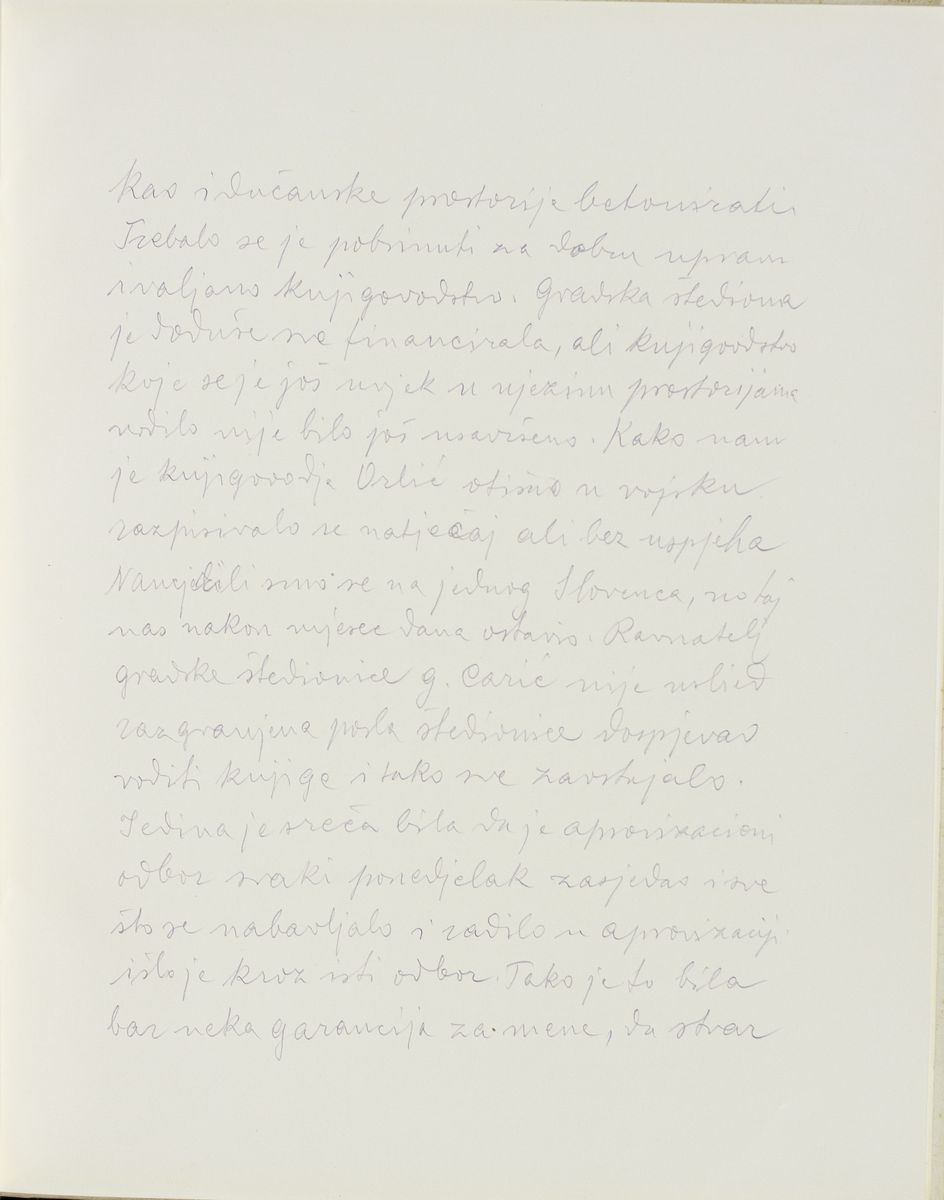 kao i dućanske prostorije betonirati.
Trebalo se je pobrinuti za dobru upravu
i valjano knjigovodstvo. Gradska štediona
je doduše sve financirala, ali knjigovodstvo
koje se je još uvjek u njezinim prostorijama
vodilo nije bilo još usavršeno. Kako nam
je knjigovodja Orlić otišao u vojsku
razpisivalo se natječaj ali bez uspjeha
Namjerili smo se na jednog Slovenca, no taj
nas nakon mjesec dana ostavio. Ravnatelj
gradske štedionice g. Carić nije uslied
razgranjena posla štedionice dospjevao
voditi knjige i tako sve zaostajalo.
Jedina je sreća bila da je aprovizacioni
odbor svaki ponedjelak zasjedao i sve
što se nabavljalo i radilo u aprovizaciji
išlo je kroz isti odbor. Tako je to bila
bar neka garancija za mene, da stvar